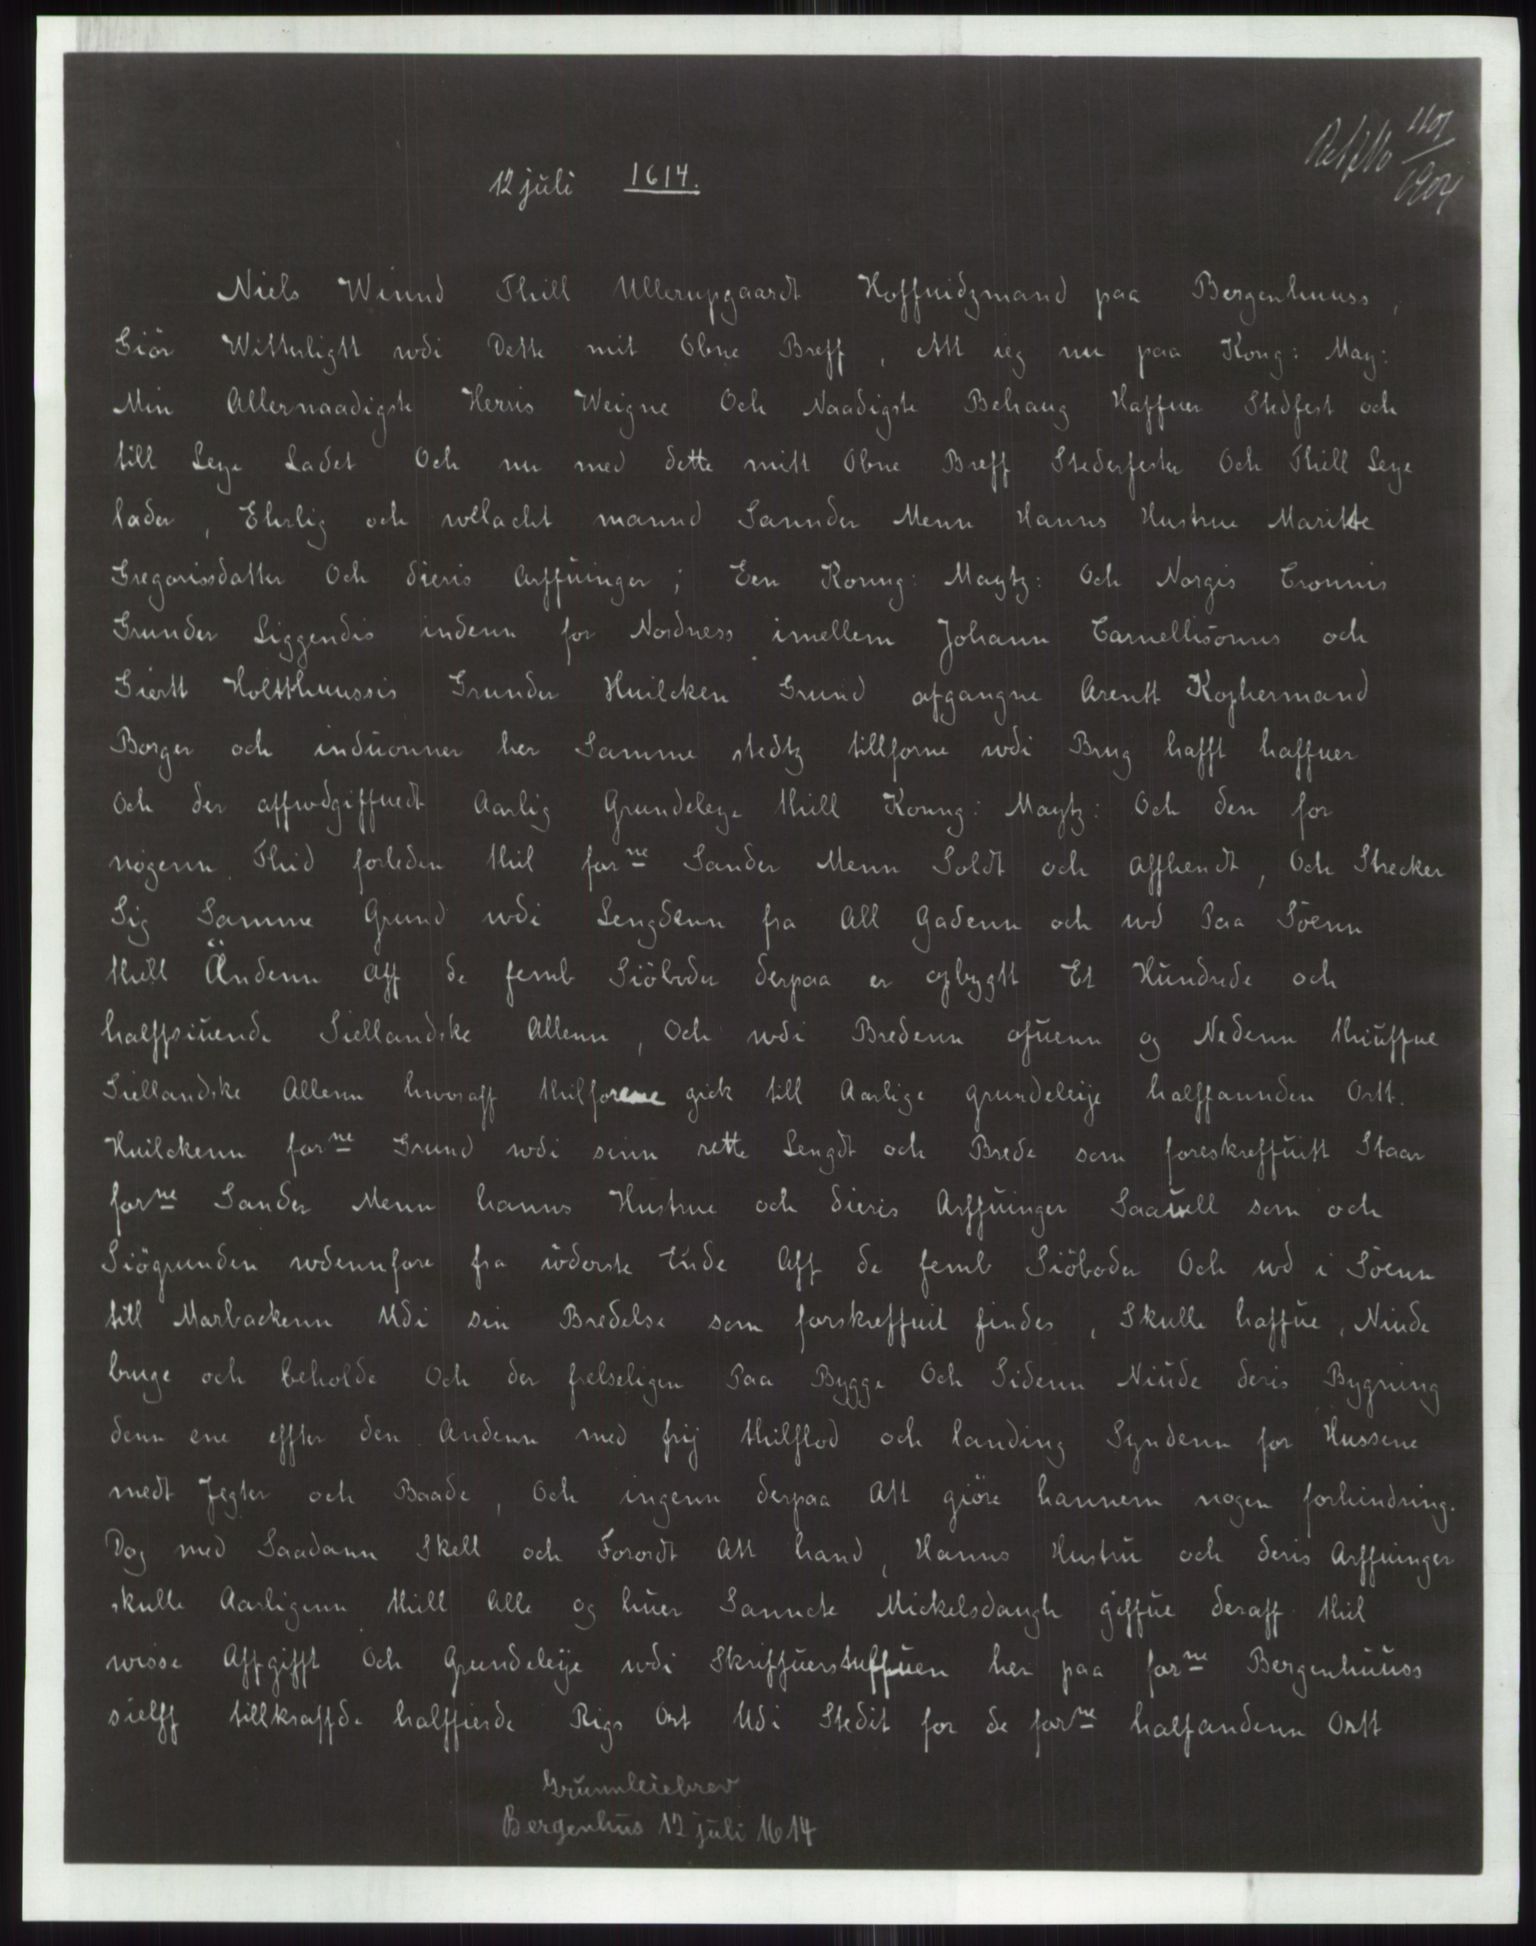 401
1904
12 juli 1614.
Niels Winnd Thill Ullerupgaardt Hoffuidzmand paa Bergenhuuss,
Giör Witterligtt wdi Dette mit Obne Breff, Att ieg nu paa Kong: May:
Min Allernaadigste Herris Weigne Och Naadigste Behaug Haffuer Stedfest och
till Leye Ladet Och nu med dette mitt Obne Breff Stederfester Och Thill Leye
lader, Ehrlig och welacht mannd Sannder Menn Hanns Hustrue Maritte
Gregorissdatter Och dieris Arffuinger; Een Konng: Maytz: Och Norgis Cronnis
Grunder Liggendis indenn for Nordness imellem Johann Carnellisönns och
Giertt Holtthuussis Grunder Huilcken Grund afgangne Arentt Kophermand
Borger och induonner her Samme stedtz tillforne wdi Brug hafft haffuer
Och der affwdgiffuedt Aarlig Grundeleye thill Konng: Maytz: Och den for
nogenn Thid forleden thil forne Sander Menn Soldt och affhendt, Och Strecker
Sig Samme Grund wdi Lengdenn fra All Gadenn och wd Paa Söenn
thill Ändenn Aff de femb Siöboder derpaa er opbygtt Et Hundrede och
halffsiuende Siellandske Allenn, Och wdi Bredenn ofuenn og Nedenn thiuffue
Siellandske Allenn hworaff thilforene gick till Aarlige grundeleije halffannden Ortt.
Huilckenn forne Grund wdi sinn rette Lengdt och Brede som foreskreffuitt Staar
forne Sander Menn hanns Hustrue och dieris Arffuinger Saauell som och
Siögrunden wdennfore fra wderste Ende Aff de femb Siöboder Och wd i Söenn
till Marbackenn Udi sin Bredelse som forskreffuit findes, Skulle haffue, Niude
bruge och beholde Och der frelseligen Paa Bygge Och Sidenn Niude deris Bygning
denn ene effter den Andenn med frij thilflod och landing Syndenn for Hussene
medt Jegter och Baade, Och ingenn derpaa Att giöre hannem nogen forhindring.
Dog med Saadann Skell och Forordt Att hand, Hanns Hustru och deris Arffuinger
skulle Aarligenn thill Alle og huer Sanncte Mickelsdaugh giffue deraff thil
wisse Affgifft Och Grundeleije wdi Skriffuerstuffuen her paa forne Bergenhuuss
sielff tillkraffde halffierde Rigs Ort Udi Stedit for de forne halfandenn Ortt
Grunnleiebrev
Bergenhus 12 juli 1614